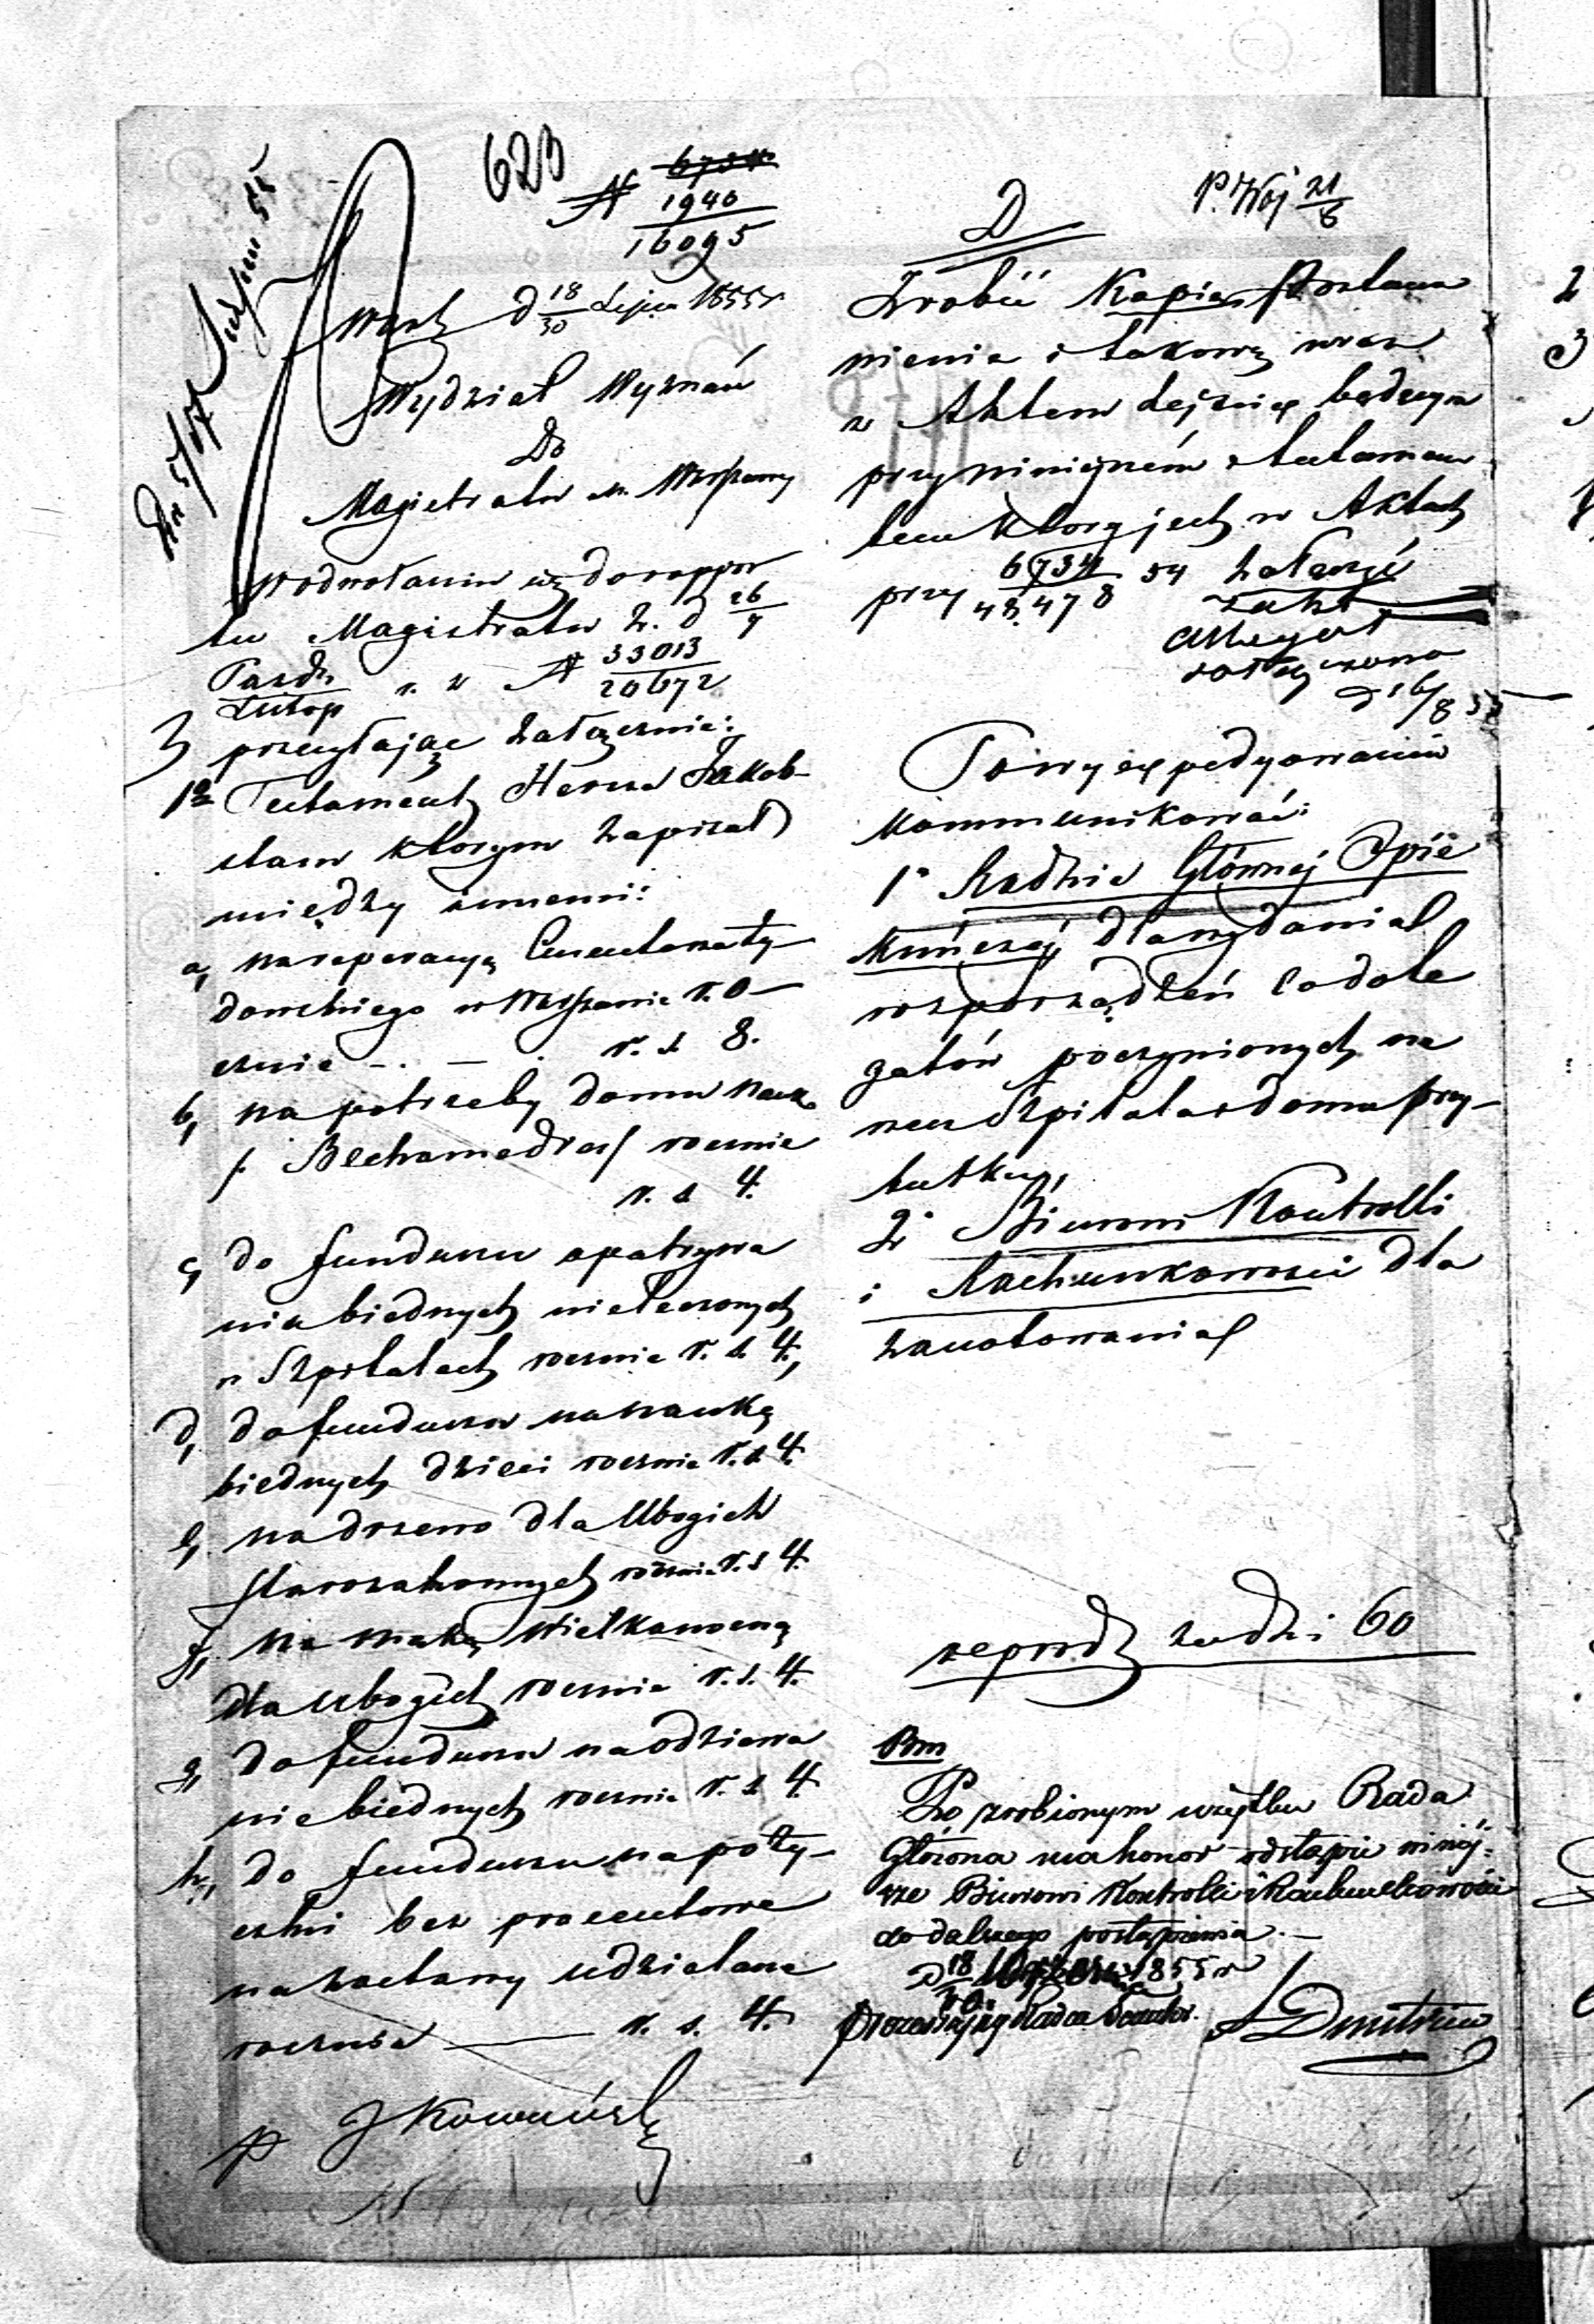 623
№ 6734
1940
16095
Warsz d 18/30 Lipca 1855 r
Wydział Wyznań
Do
Magistratu m. Warszawy
W odwołaniu się do rappor
tu Magistratu z d 26/7
Paźdz
Listop r. z. № 33013
20672
3 przesyłając załącznie:
1o Testament Hersza Jakob-
stam którym zapisał
między innemi:
a, na reperacyą Cmentarza ży-
dowskiego w Warszawie ro-
cznie – . — . r. s 8.
b, na potrzeby domu nauk
/: Bethamedras/ rocznie
r. s 4.
c, do funduszu opatrywa
nia biednych nieleczonych
w Szpitalach rocznie r. s. 4,
d, do funduszu na naukę
biednych dzieci rocznie r. s 4.
e, na drzewo dla Ubogich
starozakonnych rocznie r. s 4.
f, na mąkę Wielkanocną
dla ubogich rocznie r. s. 4.
g, do funduszu na odziewa
nie biednych rocznie r. s 4.
h, do funduszu na poży-
czki bez procentowe
na zastawy udzielane
rocznie — r. s. 4.
D
P. Woj 21/6
Zrobić Kopią Postano
wienia i takową wraz
z Aktem tejsię będącym
przy niniejszém i testamen
tem którzy jest w Aktach
przy 6734/48.478 54 załączyć
załączono
d 16/8 55
Po wyexpedyowaniu
kommunikować:
1o Radzie Głównej Opie
kuńczéj dla wydania
rozporządzeń co do le
gatów poczynionych na
rzecz Szpitala i domu przy-
tułku,
2o Biurowi Kontrolli
i Rachunkowości dla
zanotowania
60
Bm
Po zrobionym użytku Rada
Główna ma honor odstąpić niniéj-
sze Biurowi Kontrolli i Rachunkowości
do dalszego postąpienia. —
1855 r